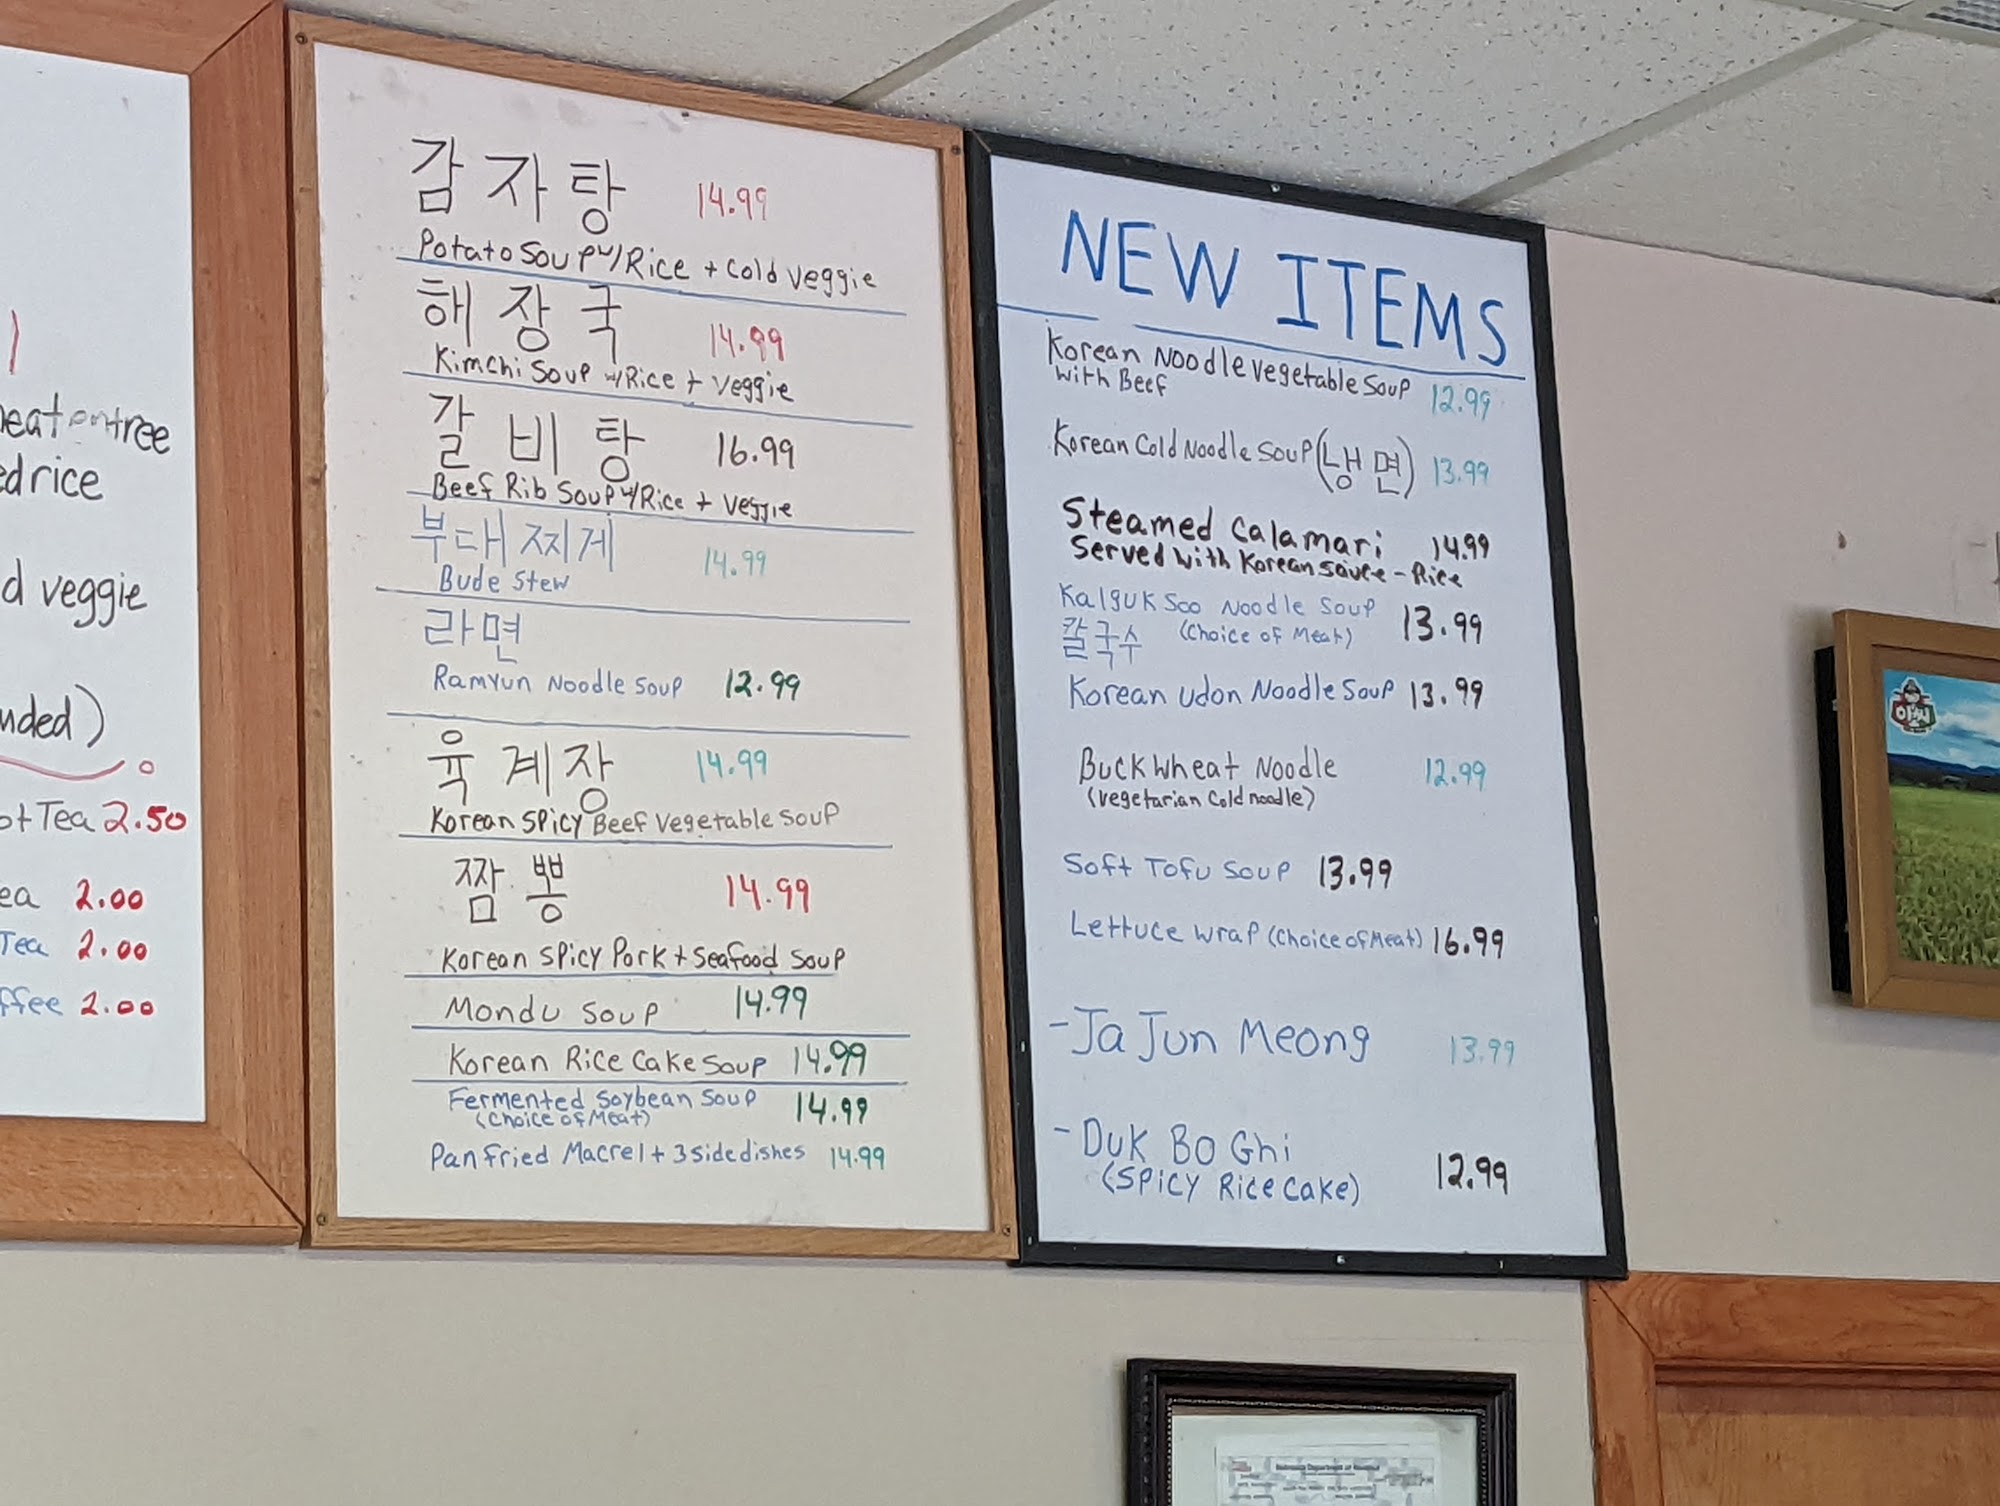 entree
rice
veggie
Tea 2.50
2.00
Tea 2.00
2.00
감자탕 14.99
Potato Soup w/Rice + Cold Veggie
해장국 14.99
Kimchi Soup w/Rice + Veggie
갈비탕 16.99
Beef Rib Soup w/Rice + Veggie
부대찌게 14.99
Bude Stew
라면
Ramyun Noodle Soup 12.99
육계장 14.99
Korean Spicy Beef Vegetable Soup
짬뽕 14.99
Korean Spicy Pork + Seafood Soup
Mondu Soup 14.99
Korean Rice Cake Soup 14.99
Fermented Soybean Soup 14.99
(Choice of Meat)
Pan Fried Macrel + 3 Sidedishes 14.99
NEW ITEMS
Korean Noodle Vegetable Soup 12.99
with Beef
Korean Cold Noodle Soup (냉면) 13.99
Steamed Calamari 14.99
Served with Korean Sauce - Rice
Kalguk Soo Noodle Soup 13.99
칼국수 (Choice of Meat)
Korean Udon Noodle Soup 13.99
Buckwheat Noodle 12.99
(Vegetarian Cold Noodle)
Soft Tofu Soup 13.99
Lettuce Wrap (Choice of Meat) 16.99
- Ja Jun Meong 13.99
- Duk Bo Ghi
(Spicy Rice Cake) 12.99